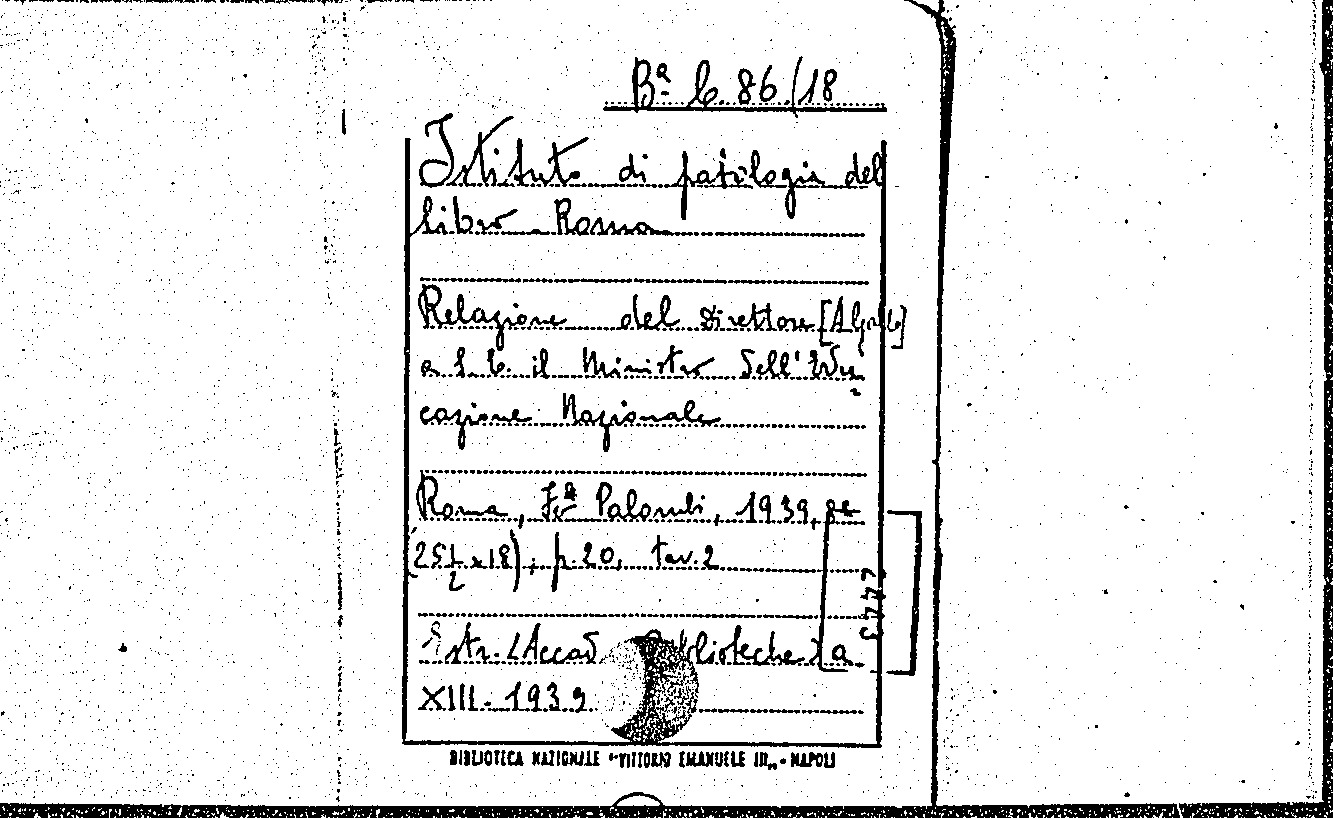 Bª b. 86/18
Istituto di patologia del
libro - Roma
Relazione del Direttore
a S. E. il Ministro dell'Edu-
cazione Nazionale
Roma, F.lli Palombi, 1939, 8º
(25 1/2 x 18), p. 20, tav. 2
Estr. (Accad. Biblioteche) a.
XIII - 1939
7443
BIBLIOTECA NAZIONALE "VITTORIO EMANUELE III„ - NAPOLI